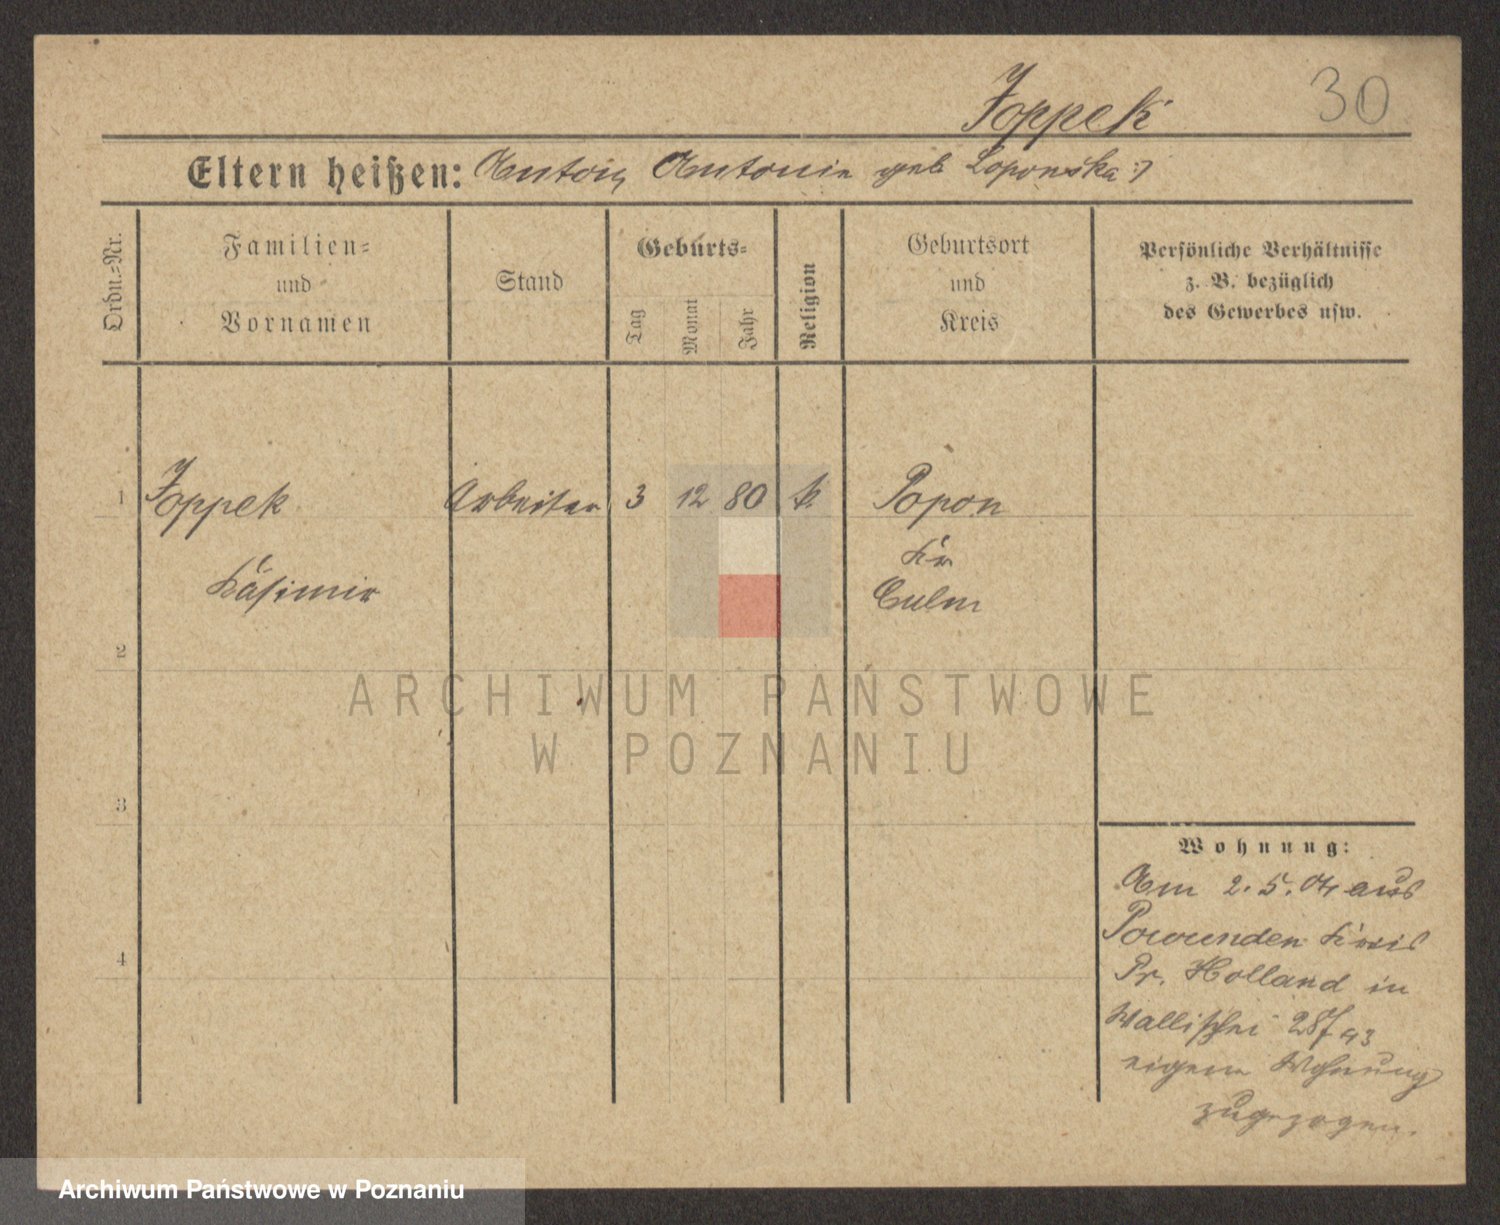 30
Joppek
Eltern heißen: Anton, Antonie geb Loponska :)
Ordn.=Nr.
Familien=
und
Vornamen
Stand
Geburts=
Tag
Monat
Jahr
Religion
Geburtsort
und
Kreis
Persönliche Verhältnisse
z. B. bezüglich
des Gewerbes usw.
1 Joppek Arbeiter 3 12 80 k. Popon
Kr
Kasimir Culm
2
ARCHIWUM PAŃSTWOWE
W POZNANIU
3
Wohnung:
Am 2. 5. 04 aus
Powunden Kreis
4
Pr. Holland in
Wallischei
eigene Wohnung
zugezogen.
Archiwum Państwowe w Poznaniu